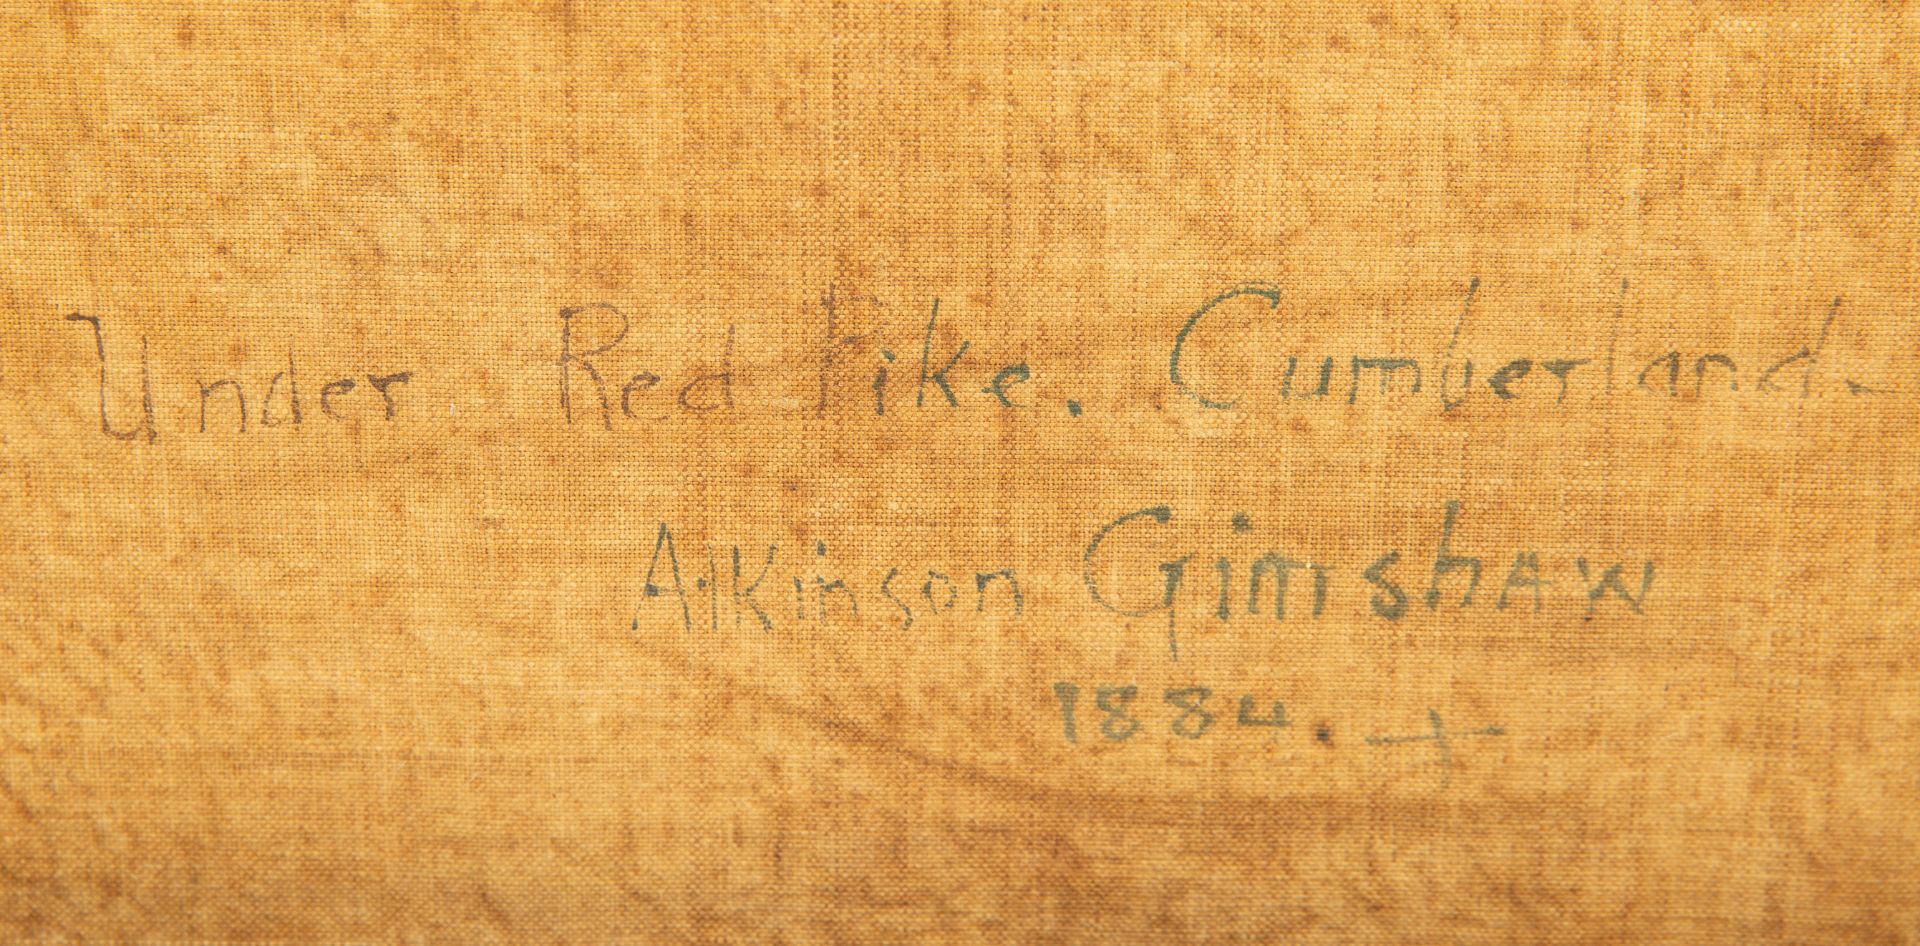 Under Red Pike. Cumberland-
Atkinson Gimshaw
1884. +